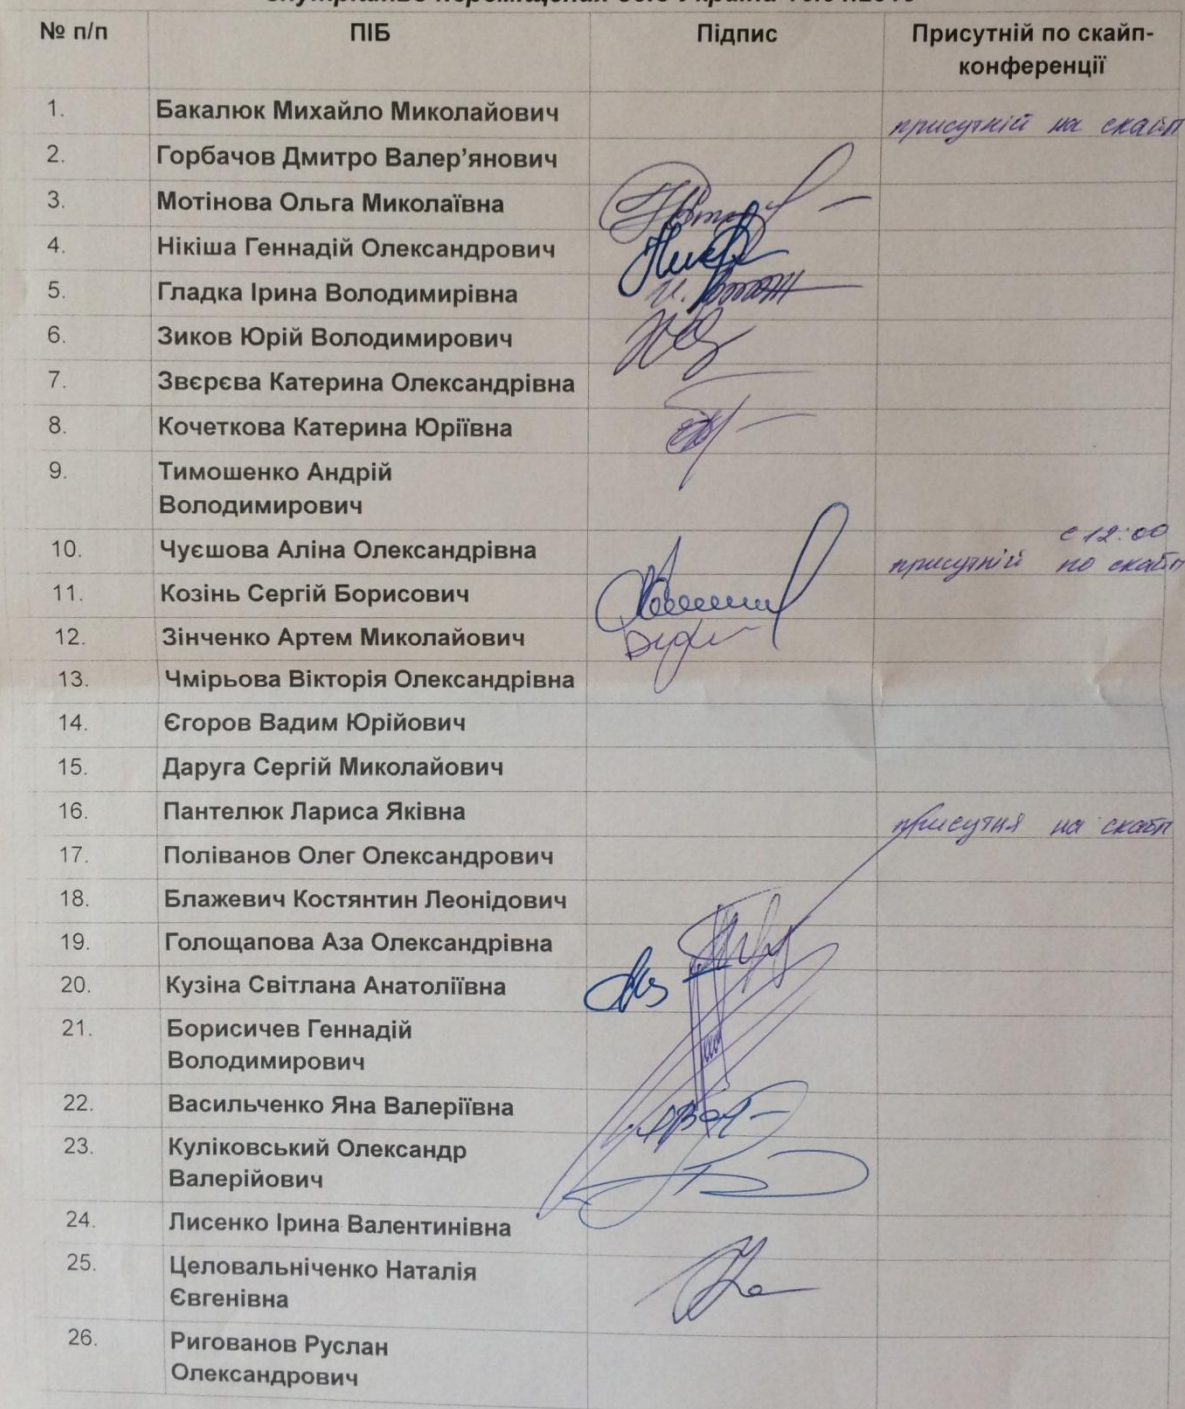 № п/п ПІБ Підпис Присутній по скайп-
конференції
1. Бакалюк Михайло Миколайович присутній на скайп
2. Горбачов Дмитро Валер’янович
3. Мотінова Ольга Миколаївна
4. Нікіша Геннадій Олександрович
5. Гладка Ірина Володимирівна
6. Зиков Юрій Володимирович
7. Звєрєва Катерина Олександрівна
8. Кочеткова Катерина Юріївна
9. Тимошенко Андрій
Володимирович
с 12:00
10. Чуєшова Аліна Олександрівна присутній по скайп
11. Козінь Сергій Борисович
12. Зінченко Артем Миколайович
13. Чмірьова Вікторія Олександрівна
14. Єгоров Вадим Юрійович
15. Даруга Сергій Миколайович
16. Пантелюк Лариса Яківна присутня на скайп
17. Поліванов Олег Олександрович
18. Блажевич Костянтин Леонідович
19. Голощапова Аза Олександрівна
20. Кузіна Світлана Анатоліївна
21. Борисичев Геннадій
Володимирович
22. Васильченко Яна Валеріївна
23. Куліковський Олександр
Валерійович
24. Лисенко Ірина Валентинівна
25. Целовальніченко Наталія
Євгенівна
26. Ригованов Руслан
Олександрович